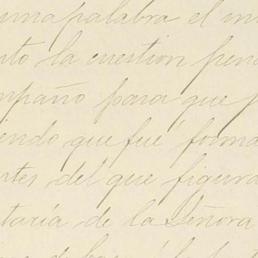 una palabra el in
nto la cuestion pen
mpaño para que p
endo que fué forma
ntes del que figura
taria de la Señora